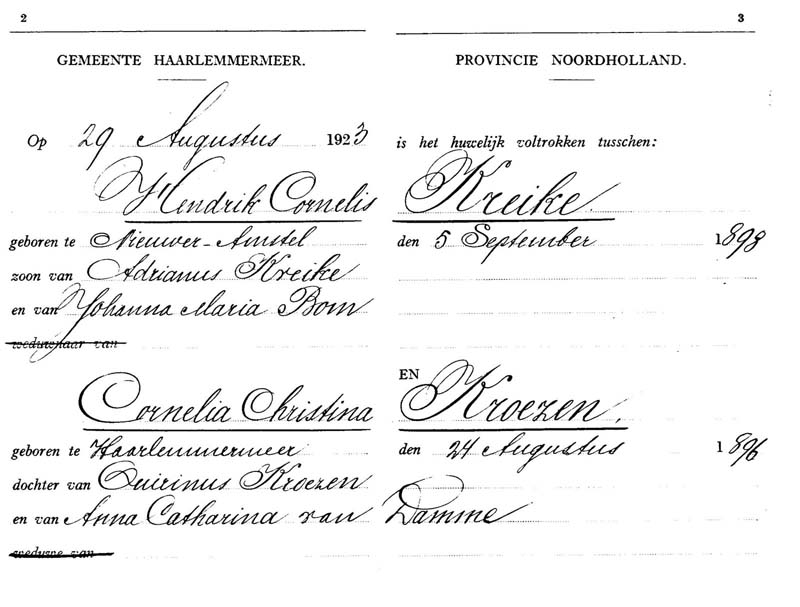 2
GEMEENTE HAARLEMMERMEER.
Op 29 Augustus 1923
Hendrik Cornelis
geboren te Nieuwer-Amstel
zoon van Adrianus Kreike
en van Johanna Maria Bom
weduwnaar van
Cornelia Christina
geboren te Haarlemmermeer
dochter van Quirinus Kroezen
en van Anna Catharina van
weduwe van
3
PROVINCIE NOORDHOLLAND.
is het huwelijk voltrokken tusschen:
Kreike.
den 5 September 1898
EN
Kroezen.
den 24 Augustus 1896
Damme